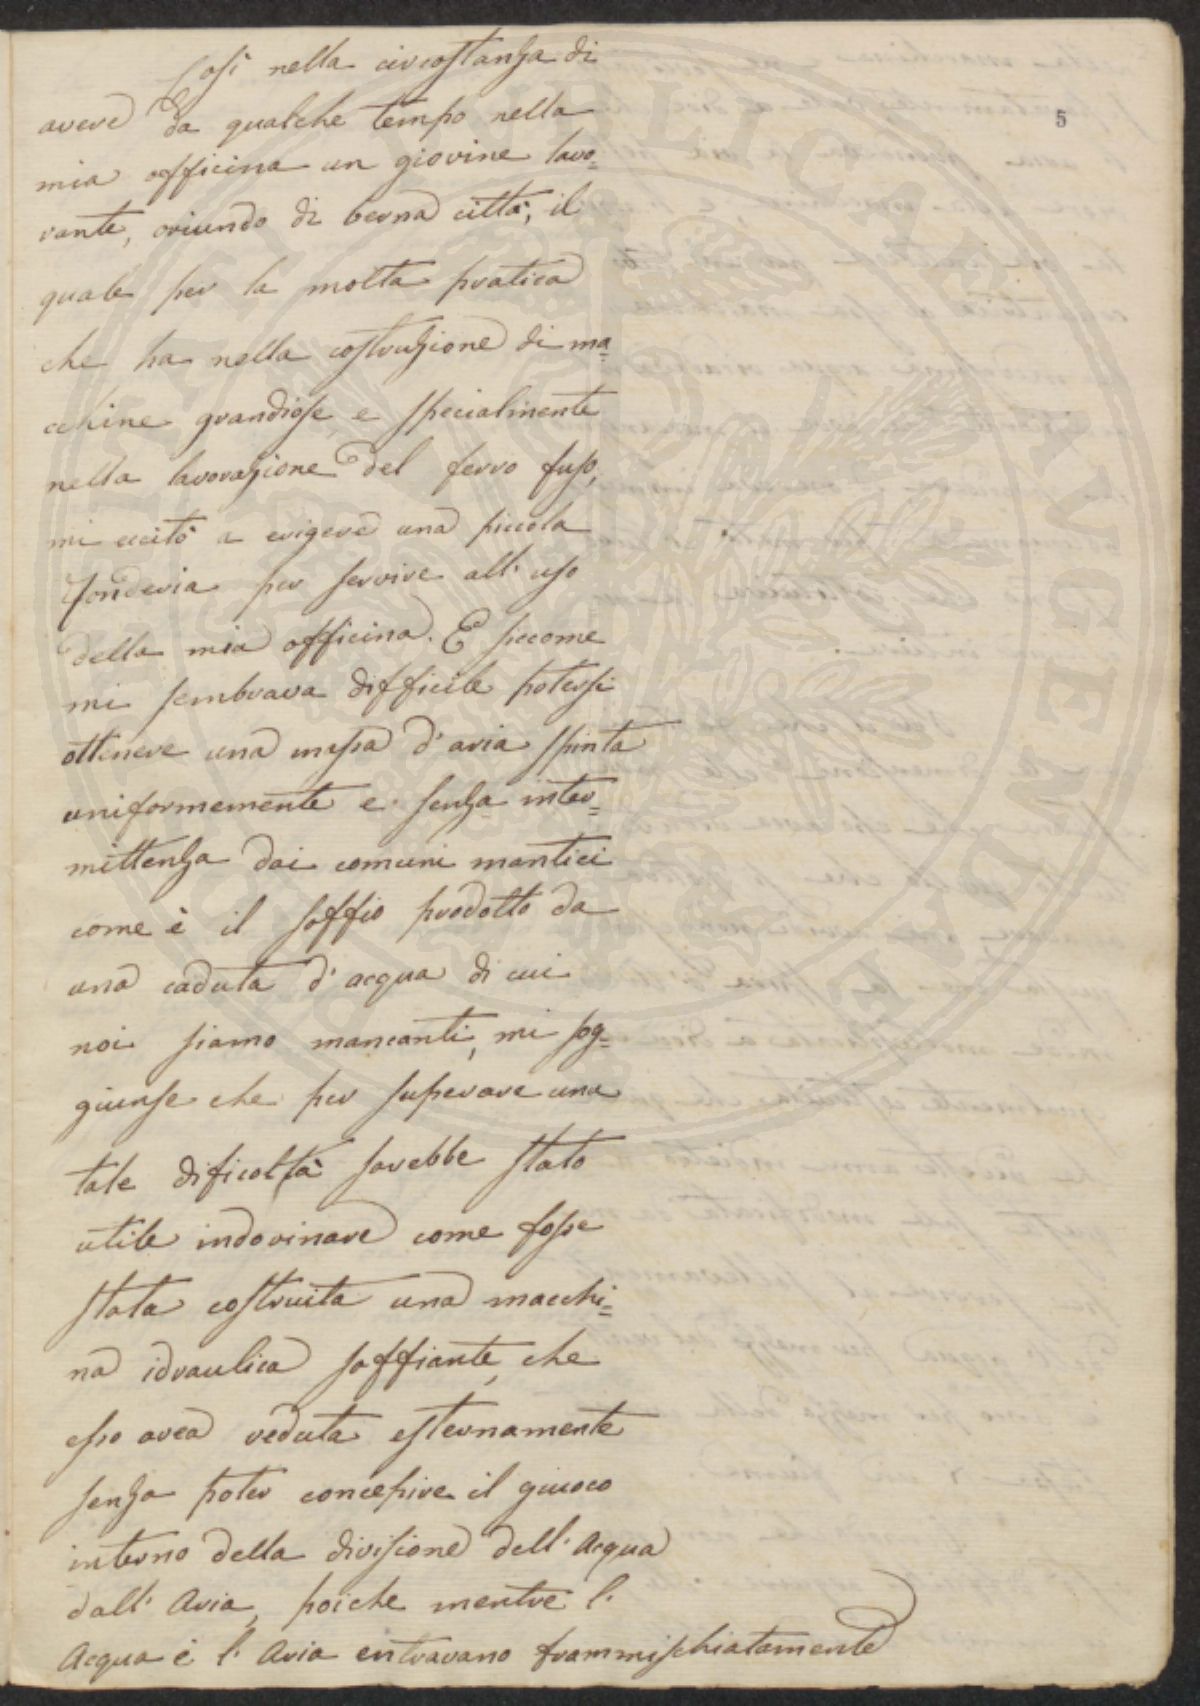 Così nella circostanza di
5
avere da qualche tempo nella
mia officina un giovine lavo=
rante, oriundo di berna città, il
quale per la molta pratica
che ha nella costruzione di ma=
cchine grandiose e specialmente
nella lavorazione del ferro fuso,
mi eccitò a erigere una piccola
Fonderia per servire all'uso
della mia officina. E siccome
mi sembrava difficile potersi
ottenere una massa d'aria spinta
uniformemente e senza inter=
mittenza dai comuni mantici
come è il soffio prodotto da
una caduta d'acqua di cui
noi siamo mancanti, mi sog=
giunse che per superare una
tale dificoltà sarebbe stato
utile indovinare come fosse
stata costruita una macchi=
na idraulica soffiante, che
esso avea veduta esternamente
senza poter concepire il giuoco
interno della divisione dell'Acqua
dall'Aria, poiche mentre l'
Acqua e l'Aria entravano frammischiatamente